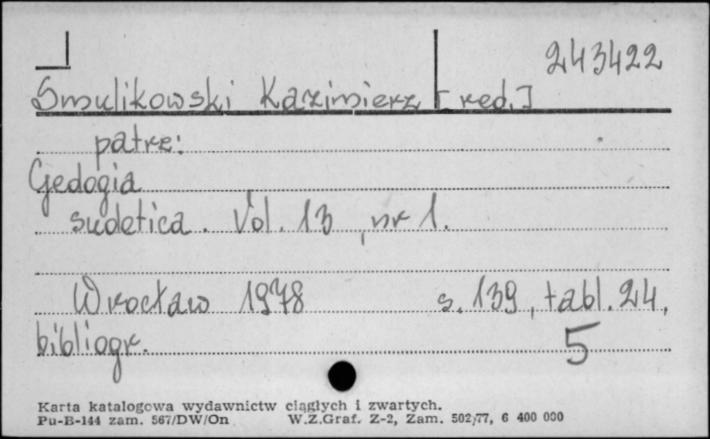 243422
Smulikowski Kazimierz [red.]
patrz:
Geologia
sudetica. Vol. 13, nr 1.
Wrocław 1978 s. 139, tabl. 24,
bibliogr. 5
Karta katalogowa wydawnictw ciągłych i zwartych.
Pu-B-144 zam. 567/DW/On W.Z.Graf. Z-2, Zam. 502/77, 6 400 000